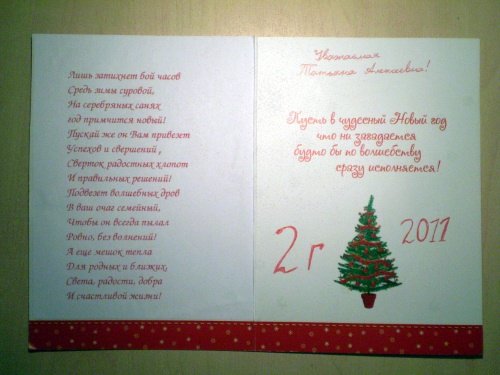 Лишь затихнет бой часов
Средь зимы суровой,
На серебряных санях
год примчится новый!
Пускай же он Вам привезет
Успехов и свершений ,
Сверток радостных хлопот
И правильных решений!
Подвезет волшебных дров
В ваш очаг семейный,
Чтобы он всегда пылал
Ровно, без волнений!
А еще мешок тепла
Для родных и близких,
Света, радости, добра
И счастливой жизни!
Уважаемая
Татьяна Алексеевна!
Пусть в чудесный Новый год
что ни загадается
будто бы по волшебству
сразу исполняется!
2 г 2011